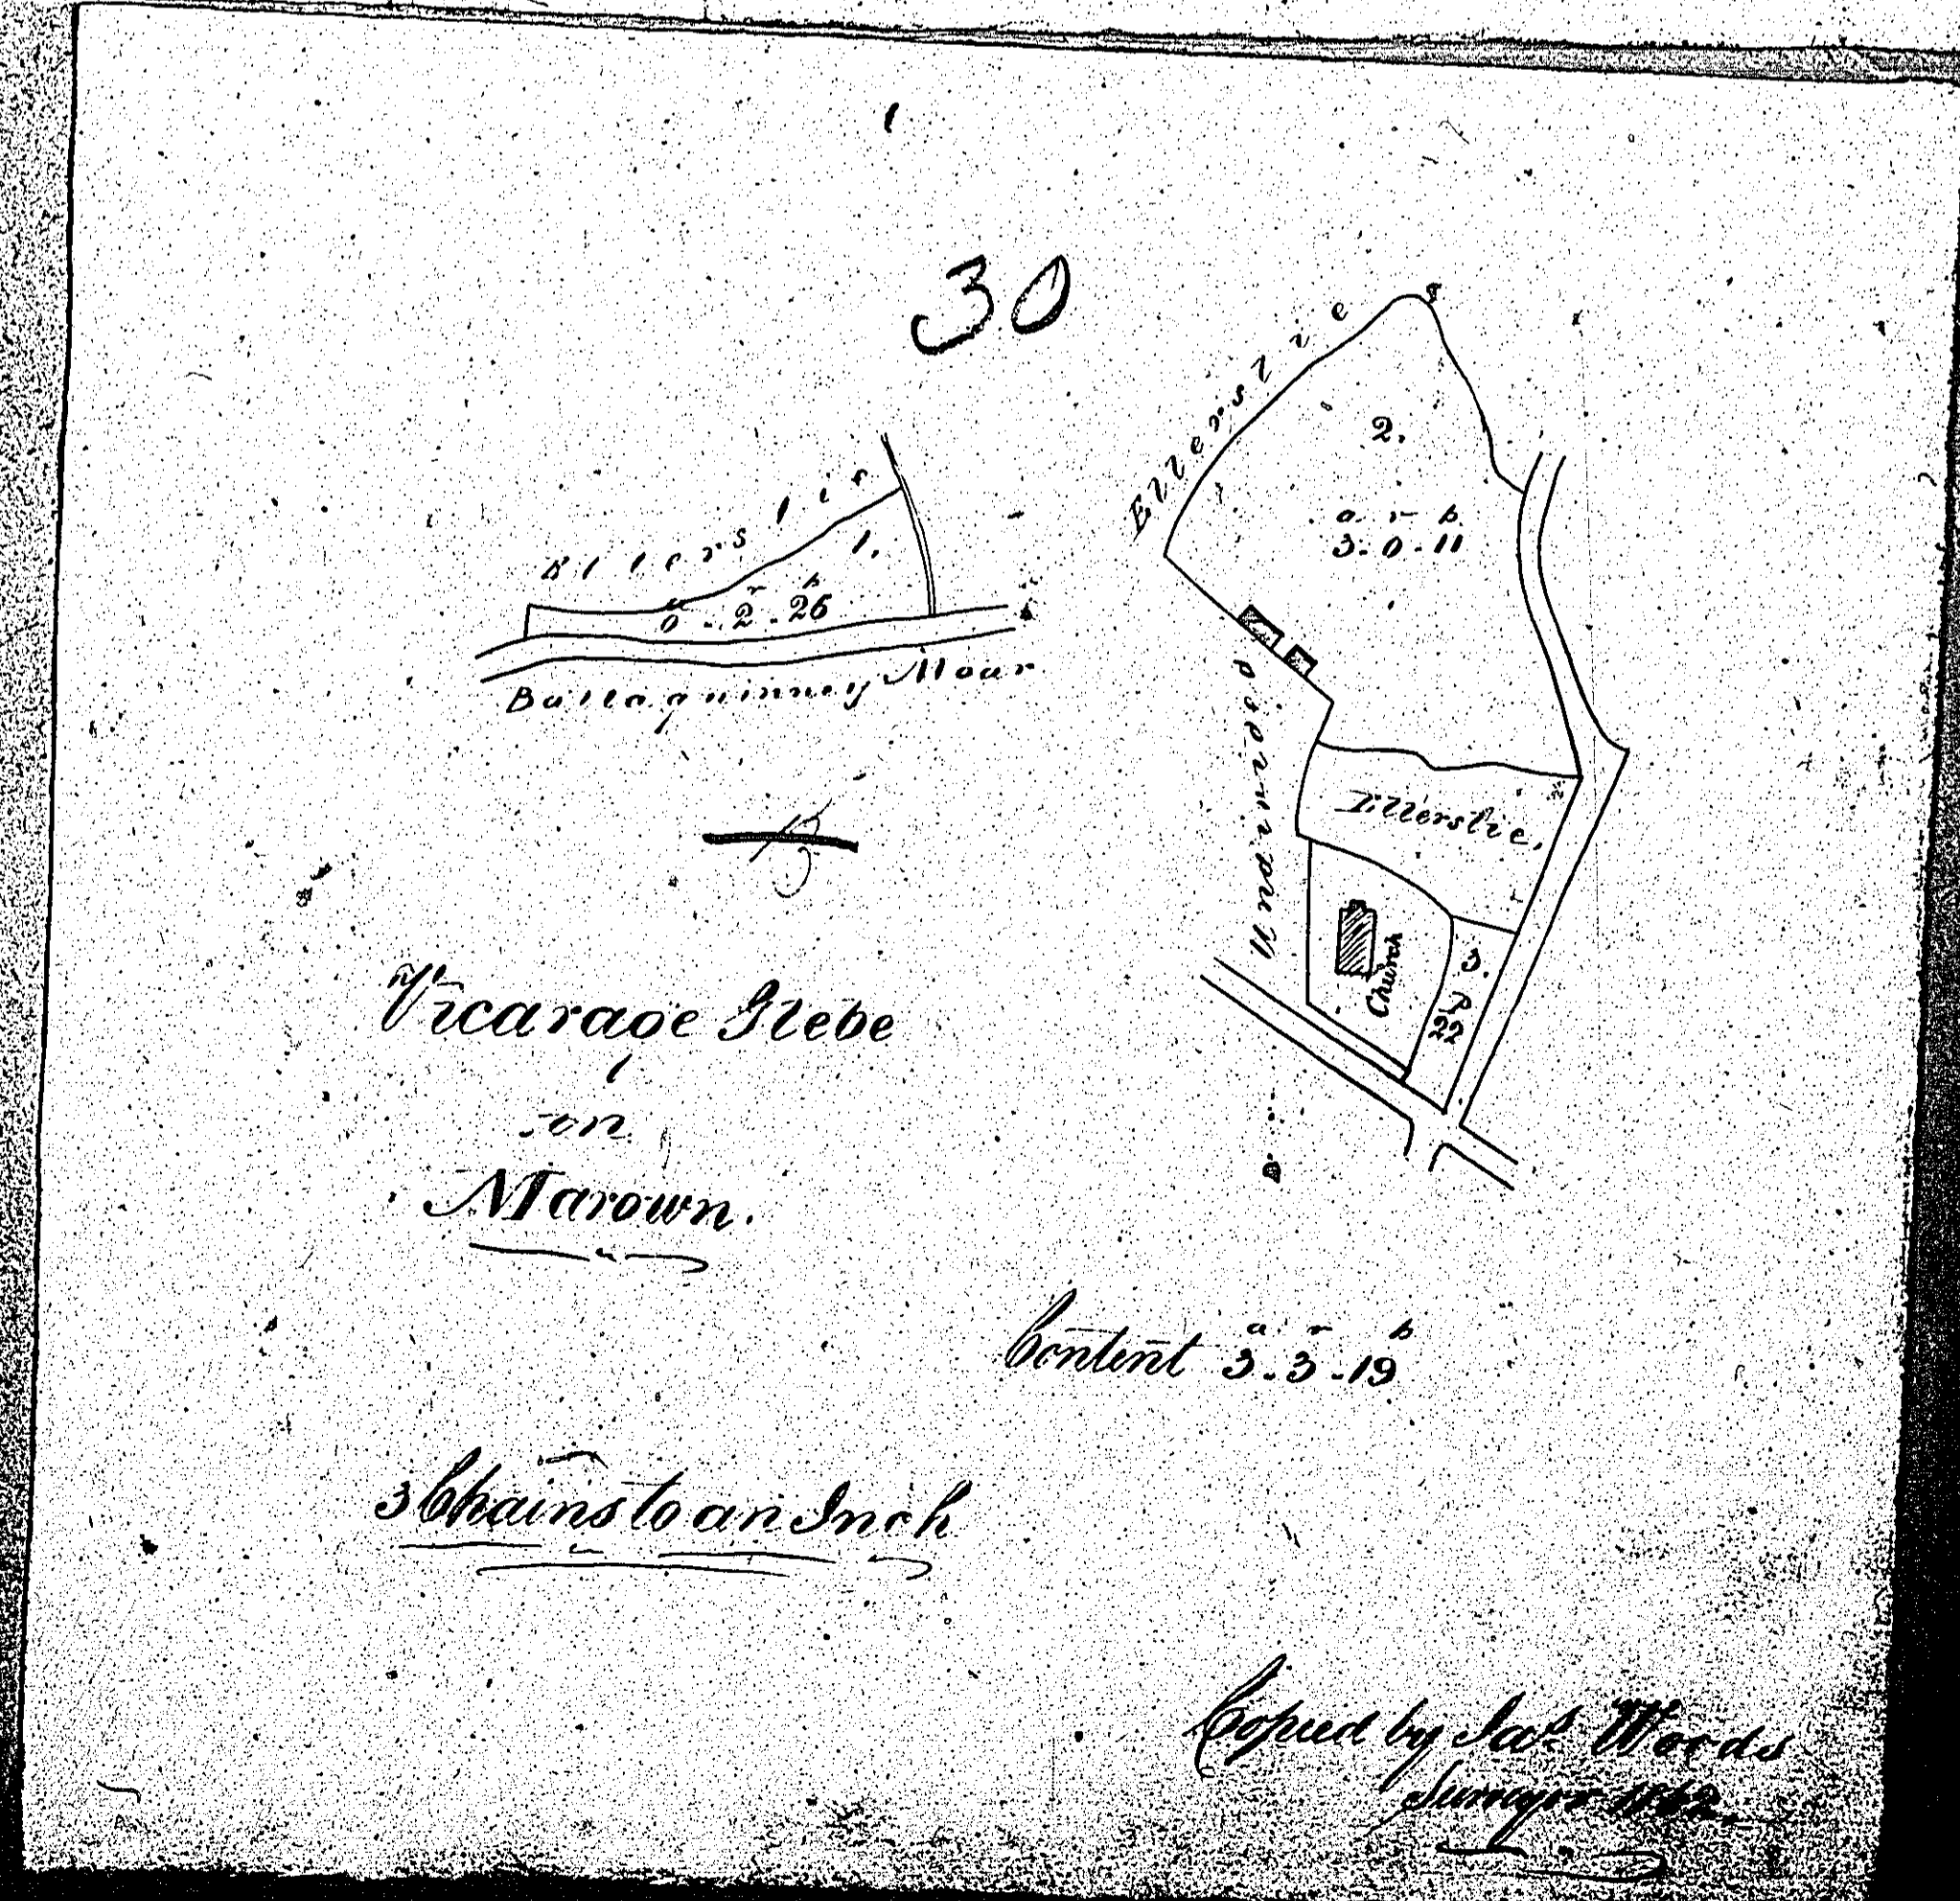 30
Ellerslie
1.
a r p
0 - 2 - 26
Ballaquinney Moar
Ellerslie
2.
a r p
3 - 0 - 11
Ellerslie.
Church
3.
P
22
Vicarage Glebe
in
Marown.
Content a r p
3 - 3 - 19
3 Chains to an Inch
Copied by Jas. Woods
Surveyor 1862